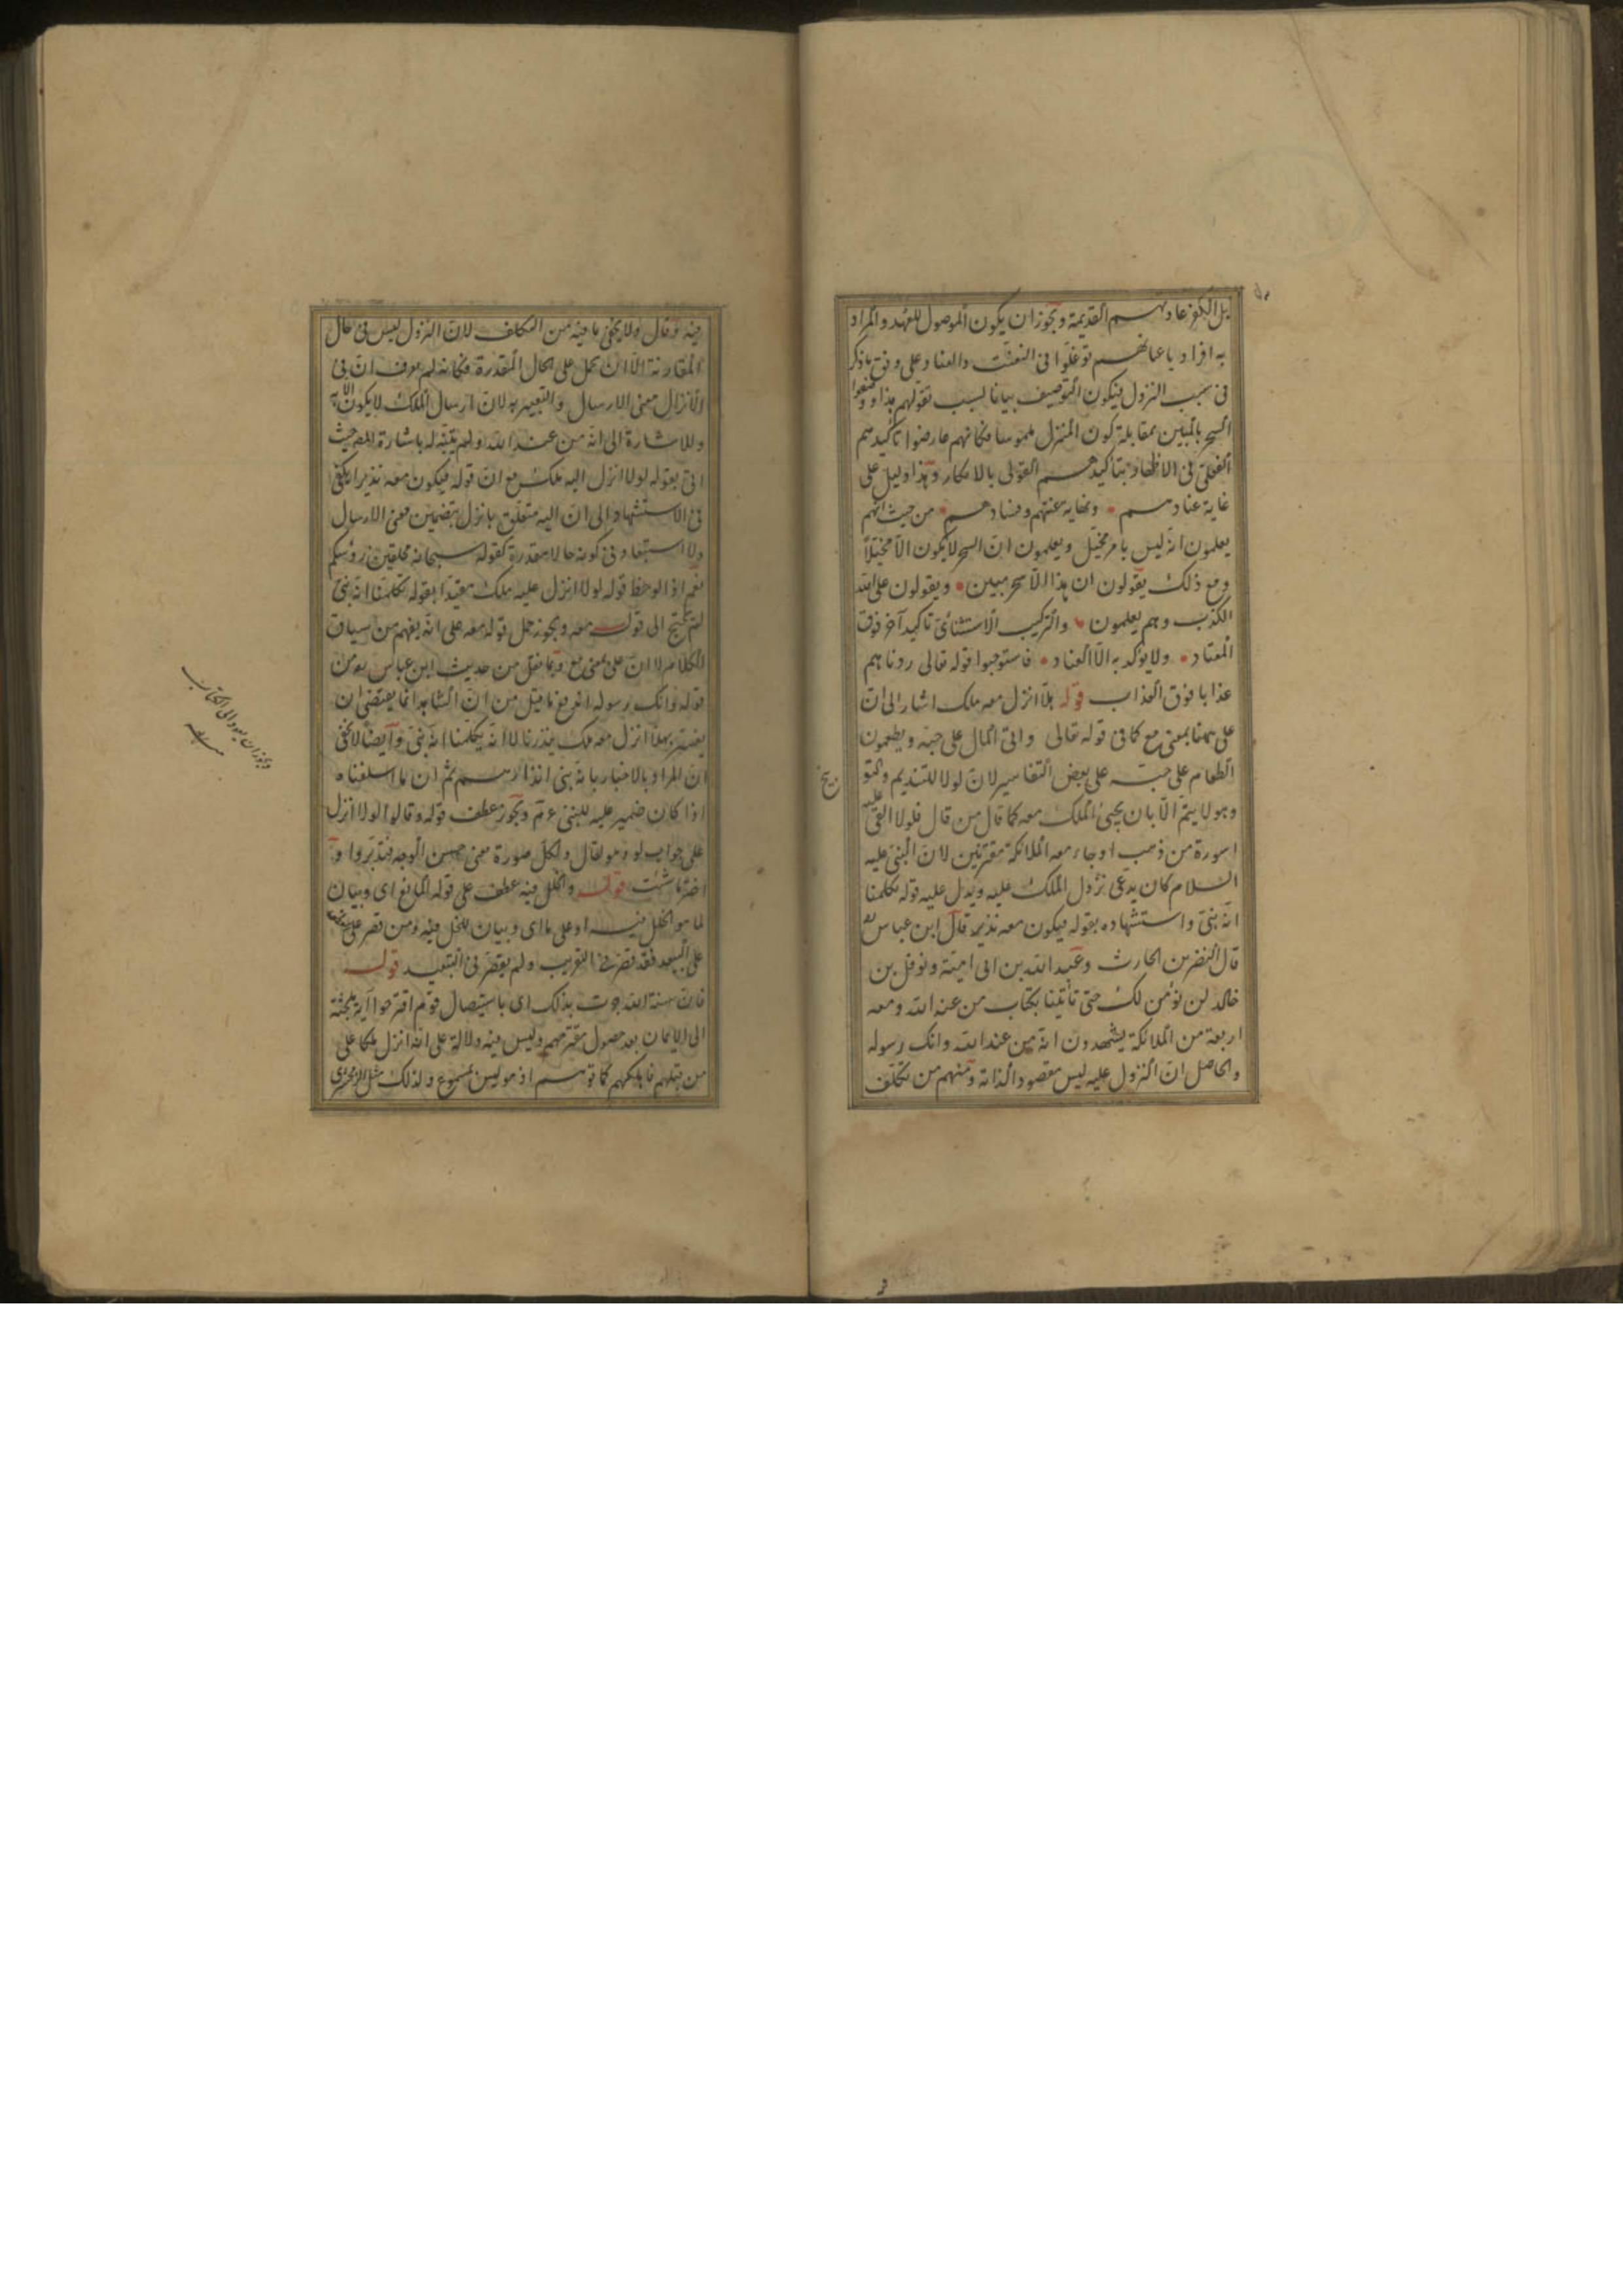 بل الكفر عادتهم القديمة ويجوز ان يكون الموصول للعهد والمراد
به افراد باعيانهم توغلوا فى التعنت والعناد وعلى وفق ما ذكر
فى سبب النزول فيكون التوصيف بيانا لسبب تقولهم هذا ووصفوا
السحر بالمبين بمقابلة كون المنزل ملموسا فكانهم عارضوا تاكيدهم
الفعلى فى الاظهار بتاكيدهم القولى بالانكار وهذا دليل على
غاية عنادهم ونهاية عنتهم وفسادهم من حيث انهم
يعلمون انه ليس بامر مخيل ويعلمون ان السحر لا يكون الا مخيلا
ومع ذلك يقولون ان هذا الا سحر مبين ويقولون على الله
الكذب وهم يعلمون والتركيب الاستثنائى تاكيد آخر فوق
المعتاد ولا يؤكد به الا العناد فاستوجبوا قوله تعالى زدناهم
عذابا فوق العذاب قوله هلا انزل معه ملك اشار الى ان
على ههنا بمعنى مع كما فى قوله تعالى واتى المال على حبه ويطعمون
الطعام على حبه على بعض التفاسير لان لولا للتنديم والتو
بيخ
وهو لا يتم الا بان يجيئ الملك معه كما قال من قال فلولا القى عليه
اسورة من ذهب او جاء معه الملائكة مقترنين لان النبى عليه
السلام كان يدعى نزول الملك عليه ويدل عليه قوله يكلمنا
انه نبى واستشهاده بقوله فيكون معه نذيرا قال ابن عباس
قال النضر بن الحارث وعبد الله بن ابى امية ونوفل بن
خالد لن نؤمن لك حتى تأتينا بكتاب من عند الله ومعه
اربعة من الملائكة يشهدون انه من عند الله وانك رسوله
والحاصل ان النزول عليه ليس مقصودا لذاته ومنهم من تكلف
فيه وقال ولا يخفى ما فيه من التكلف لان النزول ليس فى حال
المقارنة الا ان يحمل على الحال المقدرة فكانه لم يعرف ان فى
الانزال معنى الارسال والتعبير به لان ارسال الملك لا يكون الا به
وللاشارة الى انه من عند الله ولم يتنبه له باشارة المص حيث
اتى بقوله لولا انزل اليه ملك مع ان قوله فيكون معه نذيرا يكفى
فى الاستشهاد الى ان اليه متعلق بانزل بتضمين معنى الارسال
ولا استبعاد فى كونه حالا مقدرة كقوله سبحانه محلقين رؤسكم
نعم اذا لوحظ قوله لولا انزل عليه ملك مقيدا بقوله يكلمنا انه نبى
لم يحتج الى قوله معه ويجوز حمل قوله معه على انه يفهم من سياق
الكلام لا ان على بمعنى مع وبما نقل من حديث ابن عباس يؤمن
قوله وانك رسوله اندفع ما قيل من ان الشاهد انما يقتضى ان
يفسر بهلا انزل معه ملك ينذرنا لا انه يكلمنا انه نبى وايضا لا يخفى
ان المراد بالاخبار بانه نبى انذارهم ثم ان ما اسلفناه
اذا كان ضمير عليه للنبى ويجوز عطف قوله وقالوا لولا انزل
على جواب لو وهو لقال ولكل صورة معنى حسن الوجه فتدبروا و
اختر ما شئت قوله والخلل فيه عطف على قوله المانع اى وبيان
لما هو الخلل فيه او على ما اى وبيان للخلل فيه ومن قصر على
على البعيد فقد قصر فى التقريب ولم يقصر فى التبعيد قوله
فان سنة الله جرت بذلك اى باستيصال قوم اقترحوا آية ملجئة
الى الايمان بعد حصول مقترحهم وليس فيه دلالة على انه انزل ملكا على
من قبلهم فاهلكهم كما توهم اذ هو ليس بمسموع ولذلك مثل الزمخشرى
ويجوز ان يعود الى الكتاب